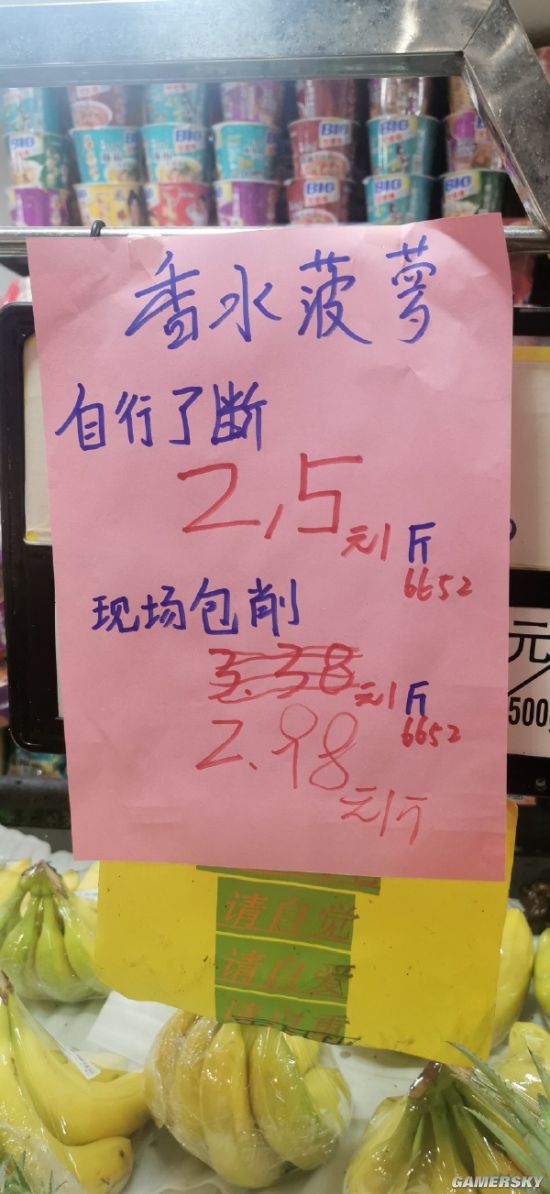 BIG BIG BIG BIG
香水菠萝
自行了断
2,5元/斤
6652
现场包削
3.38元/斤
6652
2.98
元/斤
元/
500
请自觉
请自爱
GAMERSKY